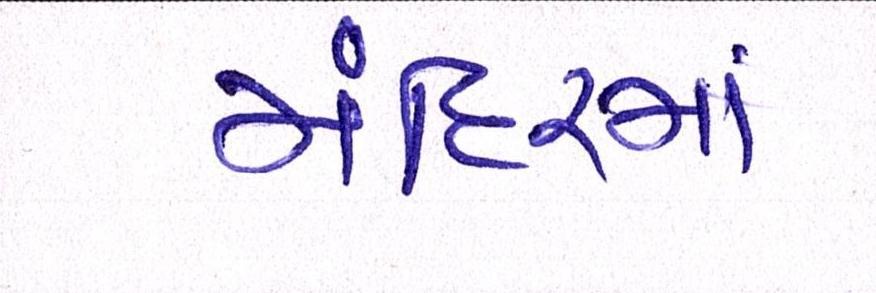 મંદિરમાં